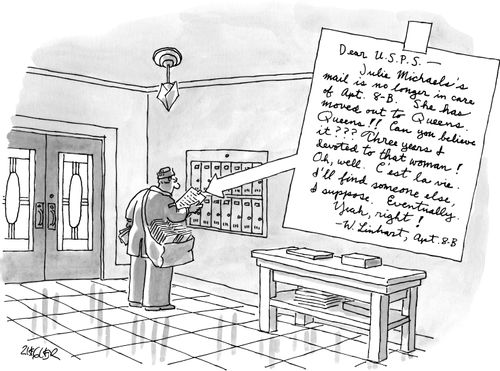 Dear U.S.P.S. —
Julie Michaels's
mail is no longer in care
of Apt. 8-B. She has
moved out to Queens.
Queens!! Can you believe
it??? Three years I
devoted to that woman!
Oh, well. C'est la vie.
I'll find someone else,
I suppose. Eventually.
Yeah, right!
—W. Linhart, Apt. 8-B
ZIEGLER